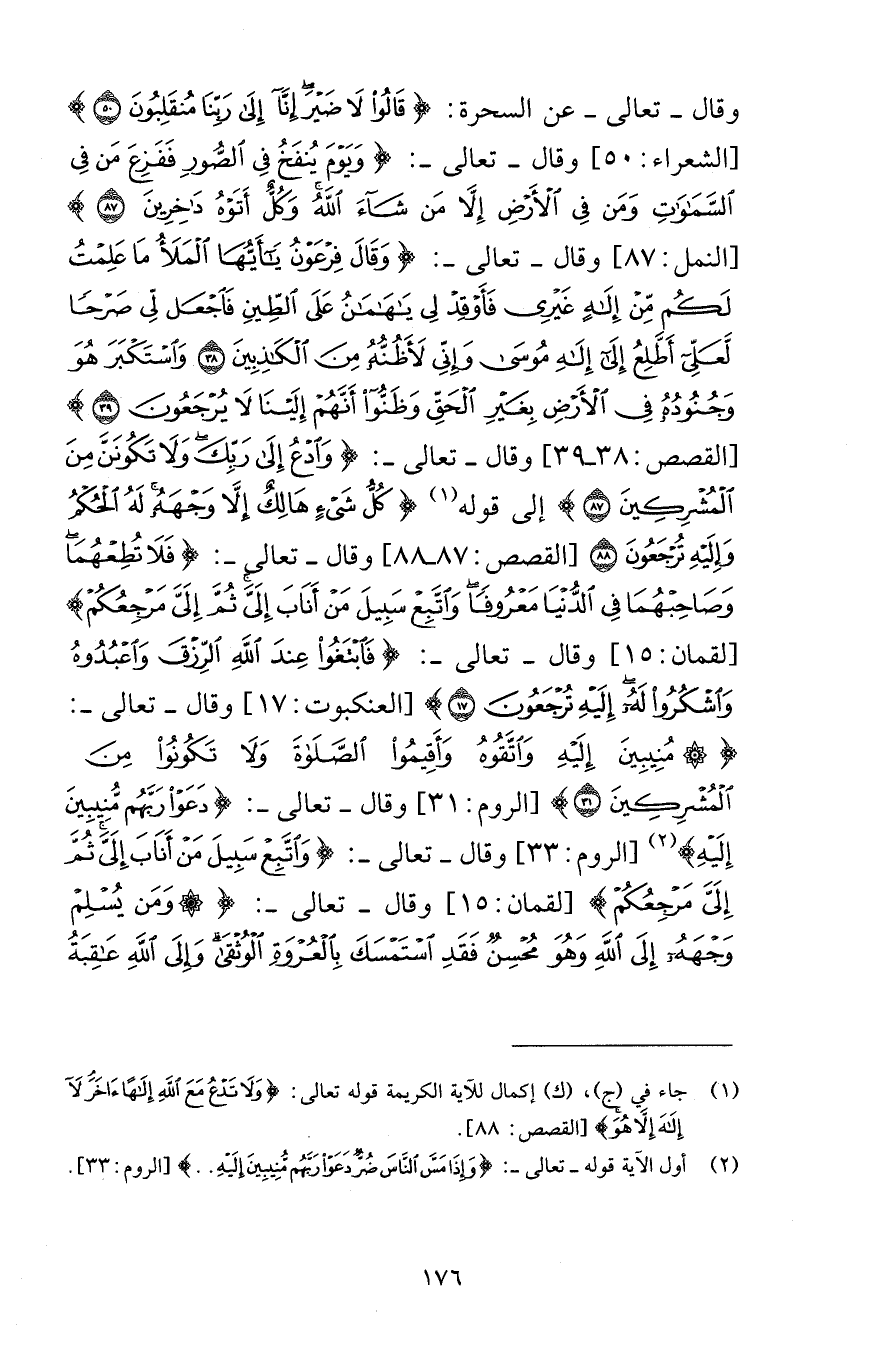 وقال - تعالى - عن السحرة: ﴿ قَالُوا۟ لَا ضَيْرَ ۖ إِنَّآ إِلَىٰ رَبِّنَا مُنقَلِبُونَ ۝٥٠ ﴾
[الشعراء: ٥٠] وقال - تعالى -: ﴿ وَيَوْمَ يُنفَخُ فِى ٱلصُّورِ فَفَزِعَ مَن فِى
ٱلسَّمَٰوَٰتِ وَمَن فِى ٱلْأَرْضِ إِلَّا مَن شَآءَ ٱللَّهُ ۚ وَكُلٌّ أَتَوْهُ دَٰخِرِينَ ۝٨٧ ﴾
[النمل: ٨٧] وقال - تعالى -: ﴿ وَقَالَ فِرْعَوْنُ يَٰٓأَيُّهَا ٱلْمَلَأُ مَا عَلِمْتُ
لَكُم مِّنْ إِلَٰهٍ غَيْرِى فَأَوْقِدْ لِى يَٰهَٰمَٰنُ عَلَى ٱلطِّينِ فَٱجْعَل لِّى صَرْحًا
لَّعَلِّىٓ أَطَّلِعُ إِلَىٰٓ إِلَٰهِ مُوسَىٰ وَإِنِّى لَأَظُنُّهُۥ مِنَ ٱلْكَٰذِبِينَ ۝٣٨ وَٱسْتَكْبَرَ هُوَ
وَجُنُودُهُۥ فِى ٱلْأَرْضِ بِغَيْرِ ٱلْحَقِّ وَظَنُّوٓا۟ أَنَّهُمْ إِلَيْنَا لَا يُرْجَعُونَ ۝٣٩ ﴾
[القصص: ٣٨-٣٩] وقال - تعالى -: ﴿ وَٱدْعُ إِلَىٰ رَبِّكَ ۖ وَلَا تَكُونَنَّ مِنَ
ٱلْمُشْرِكِينَ ۝٨٧ ﴾ إلى قوله(١) ﴿ كُلُّ شَىْءٍ هَالِكٌ إِلَّا وَجْهَهُۥ ۚ لَهُ ٱلْحُكْمُ
وَإِلَيْهِ تُرْجَعُونَ ۝٨٨ [القصص: ٨٧-٨٨] وقال - تعالى -: ﴿ فَلَا تُطِعْهُمَا ۖ
وَصَاحِبْهُمَا فِى ٱلدُّنْيَا مَعْرُوفًا ۖ وَٱتَّبِعْ سَبِيلَ مَنْ أَنَابَ إِلَىَّ ۚ ثُمَّ إِلَىَّ مَرْجِعُكُمْ﴾
[لقمان: ١٥] وقال - تعالى -: ﴿ فَٱبْتَغُوا۟ عِندَ ٱللَّهِ ٱلرِّزْقَ وَٱعْبُدُوهُ
وَٱشْكُرُوا۟ لَهُۥٓ ۖ إِلَيْهِ تُرْجَعُونَ ۝١٧ ﴾ [العنكبوت: ١٧] وقال - تعالى -:
﴿ ۞ مُنِيبِينَ إِلَيْهِ وَٱتَّقُوهُ وَأَقِيمُوا۟ ٱلصَّلَوٰةَ وَلَا تَكُونُوا۟ مِنَ
ٱلْمُشْرِكِينَ ۝٣١ ﴾ [الروم: ٣١] وقال - تعالى -: ﴿ دَعَوْا۟ رَبَّهُم مُّنِيبِينَ
إِلَيْهِ﴾(٢) [الروم: ٣٣] وقال - تعالى -: ﴿ وَٱتَّبِعْ سَبِيلَ مَنْ أَنَابَ إِلَىَّ ۚ ثُمَّ
إِلَىَّ مَرْجِعُكُمْ ﴾ [لقمان: ١٥] وقال - تعالى -: ﴿ ۞ وَمَن يُسْلِمْ
وَجْهَهُۥٓ إِلَى ٱللَّهِ وَهُوَ مُحْسِنٌ فَقَدِ ٱسْتَمْسَكَ بِٱلْعُرْوَةِ ٱلْوُثْقَىٰ ۗ وَإِلَى ٱللَّهِ عَٰقِبَةُ
(١) جاء في (ج)، (ك) إكمال للآية الكريمة قوله تعالى: ﴿ وَلَا تَدْعُ مَعَ ٱللَّهِ إِلَٰهًا ءَاخَرَ ۘ لَآ
إِلَٰهَ إِلَّا هُوَ ۚ﴾ [القصص: ٨٨].
(٢) أول الآية قوله - تعالى -: ﴿ وَإِذَا مَسَّ ٱلنَّاسَ ضُرٌّ دَعَوْا۟ رَبَّهُم مُّنِيبِينَ إِلَيْهِ. . ﴾ [الروم: ٣٣].
١٧٦